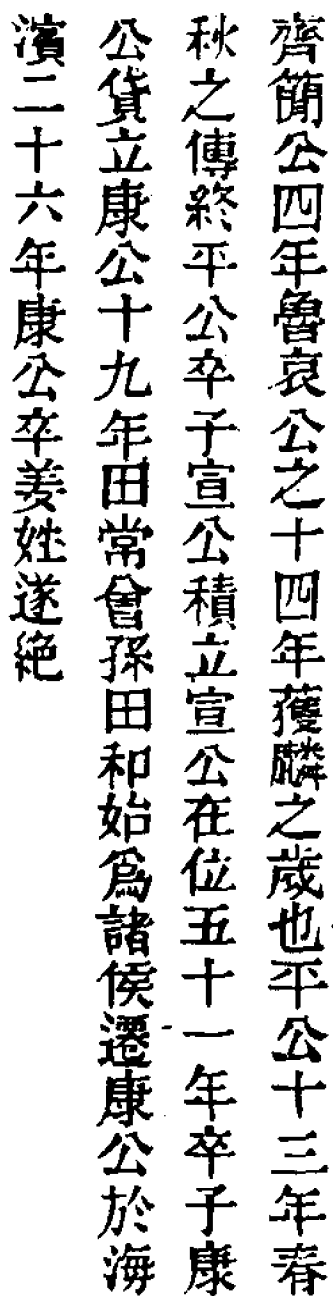 齊簡公四年魯哀公之十四年獲麟之歲也平公十三年春
秋之傳終平公卒子宣公積立宣公在位五十一年卒子康
公貨立康公十九年田常曾孫田和始爲諸侯遷康公於海
濱二十六年康公卒姜姓遂絕